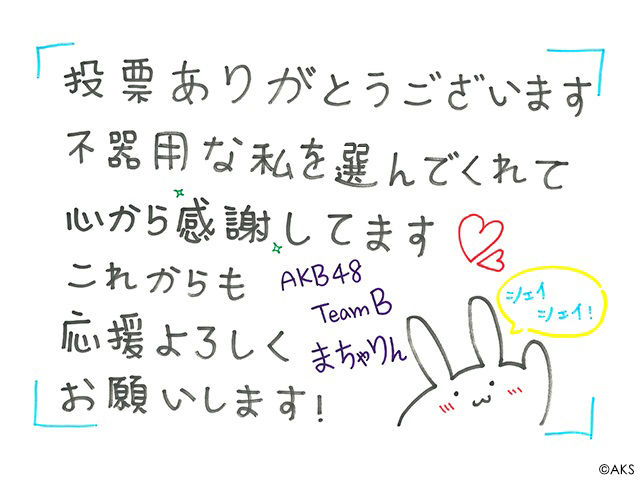 投票ありがとうございます
不器用な私を選んでくれて
心から感謝してます
これからも
応援よろしく
お願いします!
AKB48
Team B
まちゃりん
シェイ
シェイ!
©AKS